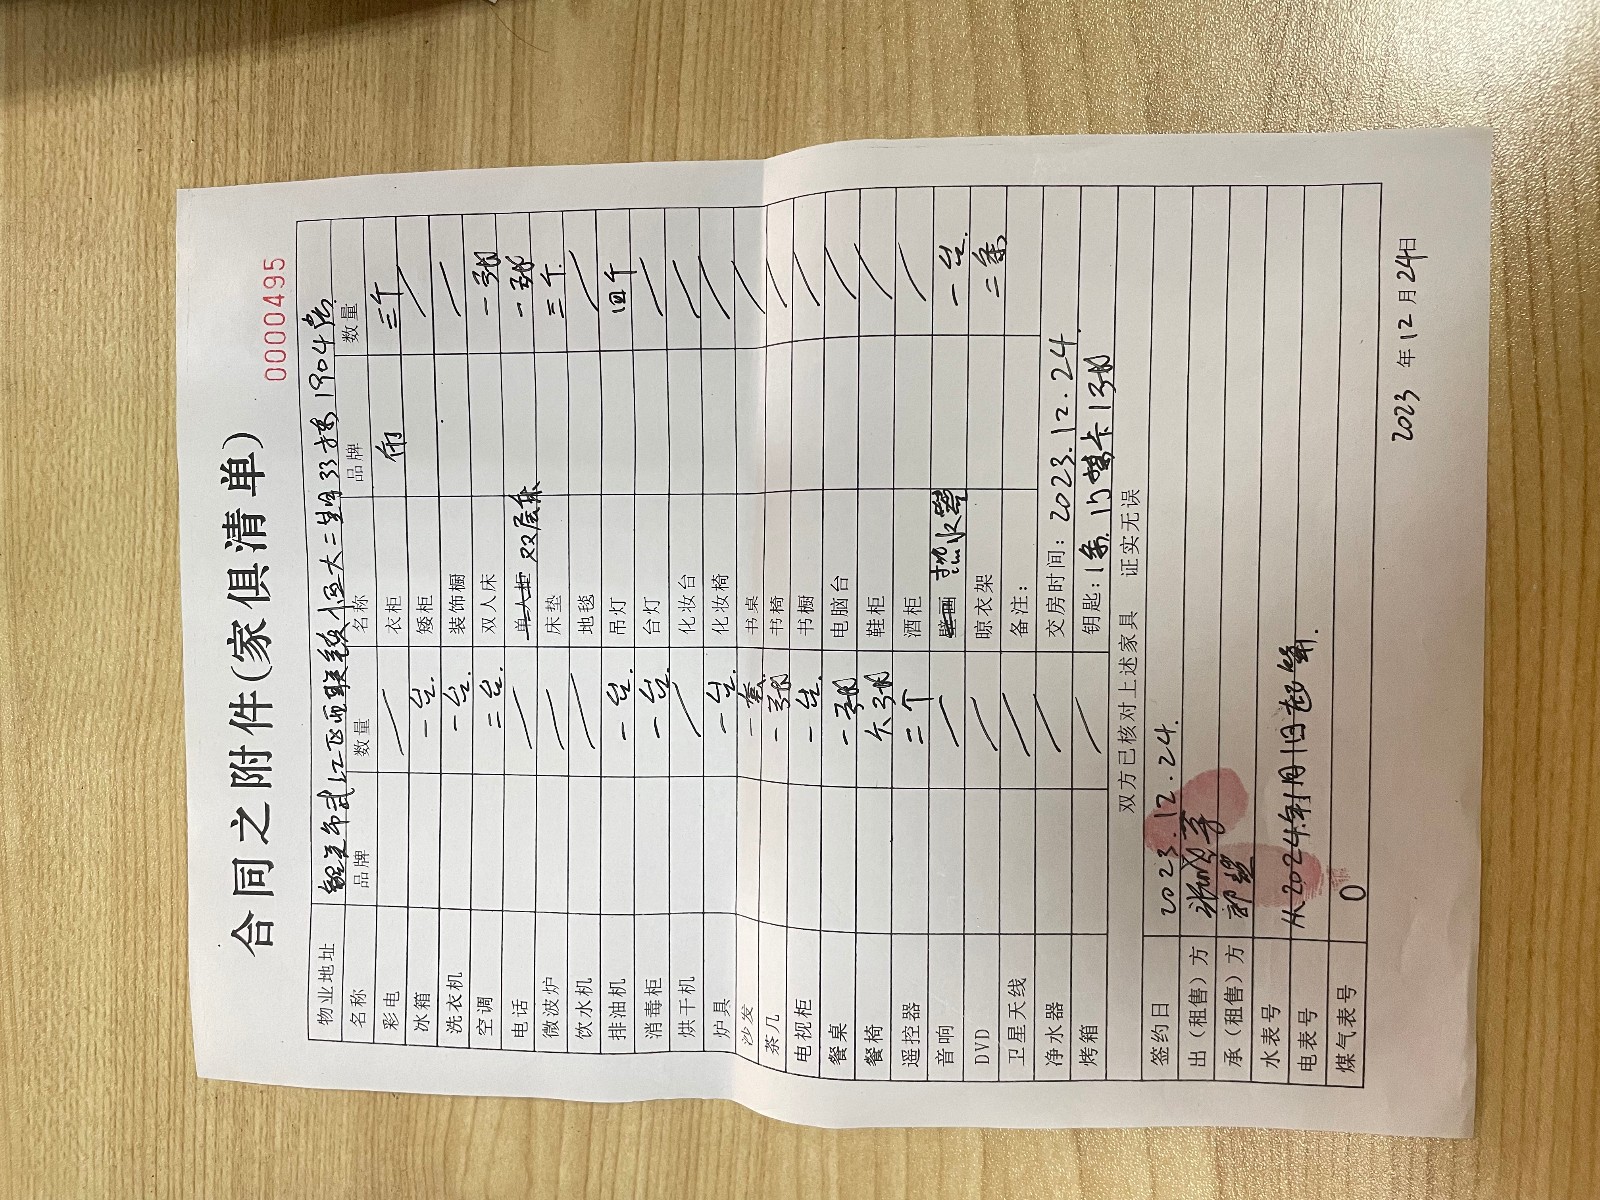 0000495
合同之附件(家俱清单)
物业地址 韶关市武江区西联镇恒大三期33栋1904房
名称 品牌 数量 名称 品牌 数量
彩电 / 衣柜 布 三个
冰箱 一台. 矮柜 /
洗衣机 一台. 装饰橱 /
空调 二台. 双人床 一张
电话 / 单人柜 双层床 一张
微波炉 / 床垫 三个.
饮水机 / 地毯 /
排油机 一台. 吊灯 四个
消毒柜 一台. 台灯 /
烘干机 / 化妆台 /
炉具 一台. 化妆椅 /
沙发 一套. 书桌 /
茶几 一张 书椅 /
电视柜 一台. 书橱 /
餐桌 一张 电脑台 /
餐椅 六张 鞋柜 /
遥控器 二个 酒柜 /
音响 / 壁画 热水器 一台.
DVD / 晾衣架 二条
卫星天线 / 备注：
净水器 / 交房时间：2023.12.24.
烤箱 / 钥匙：1条. 门禁卡1张
双方已核对上述家具 证实无误
签约日 2023.12.24.
出（租售）方
承（租售）方
水表号
电表号 从2024年1月1日起算.
煤气表号 0
2023 年 12 月 24 日